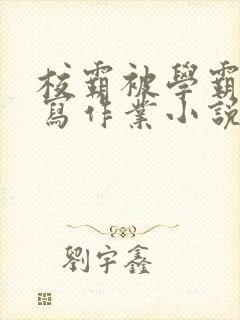 校霸被學霸
寫作業小說
劉宇鑫